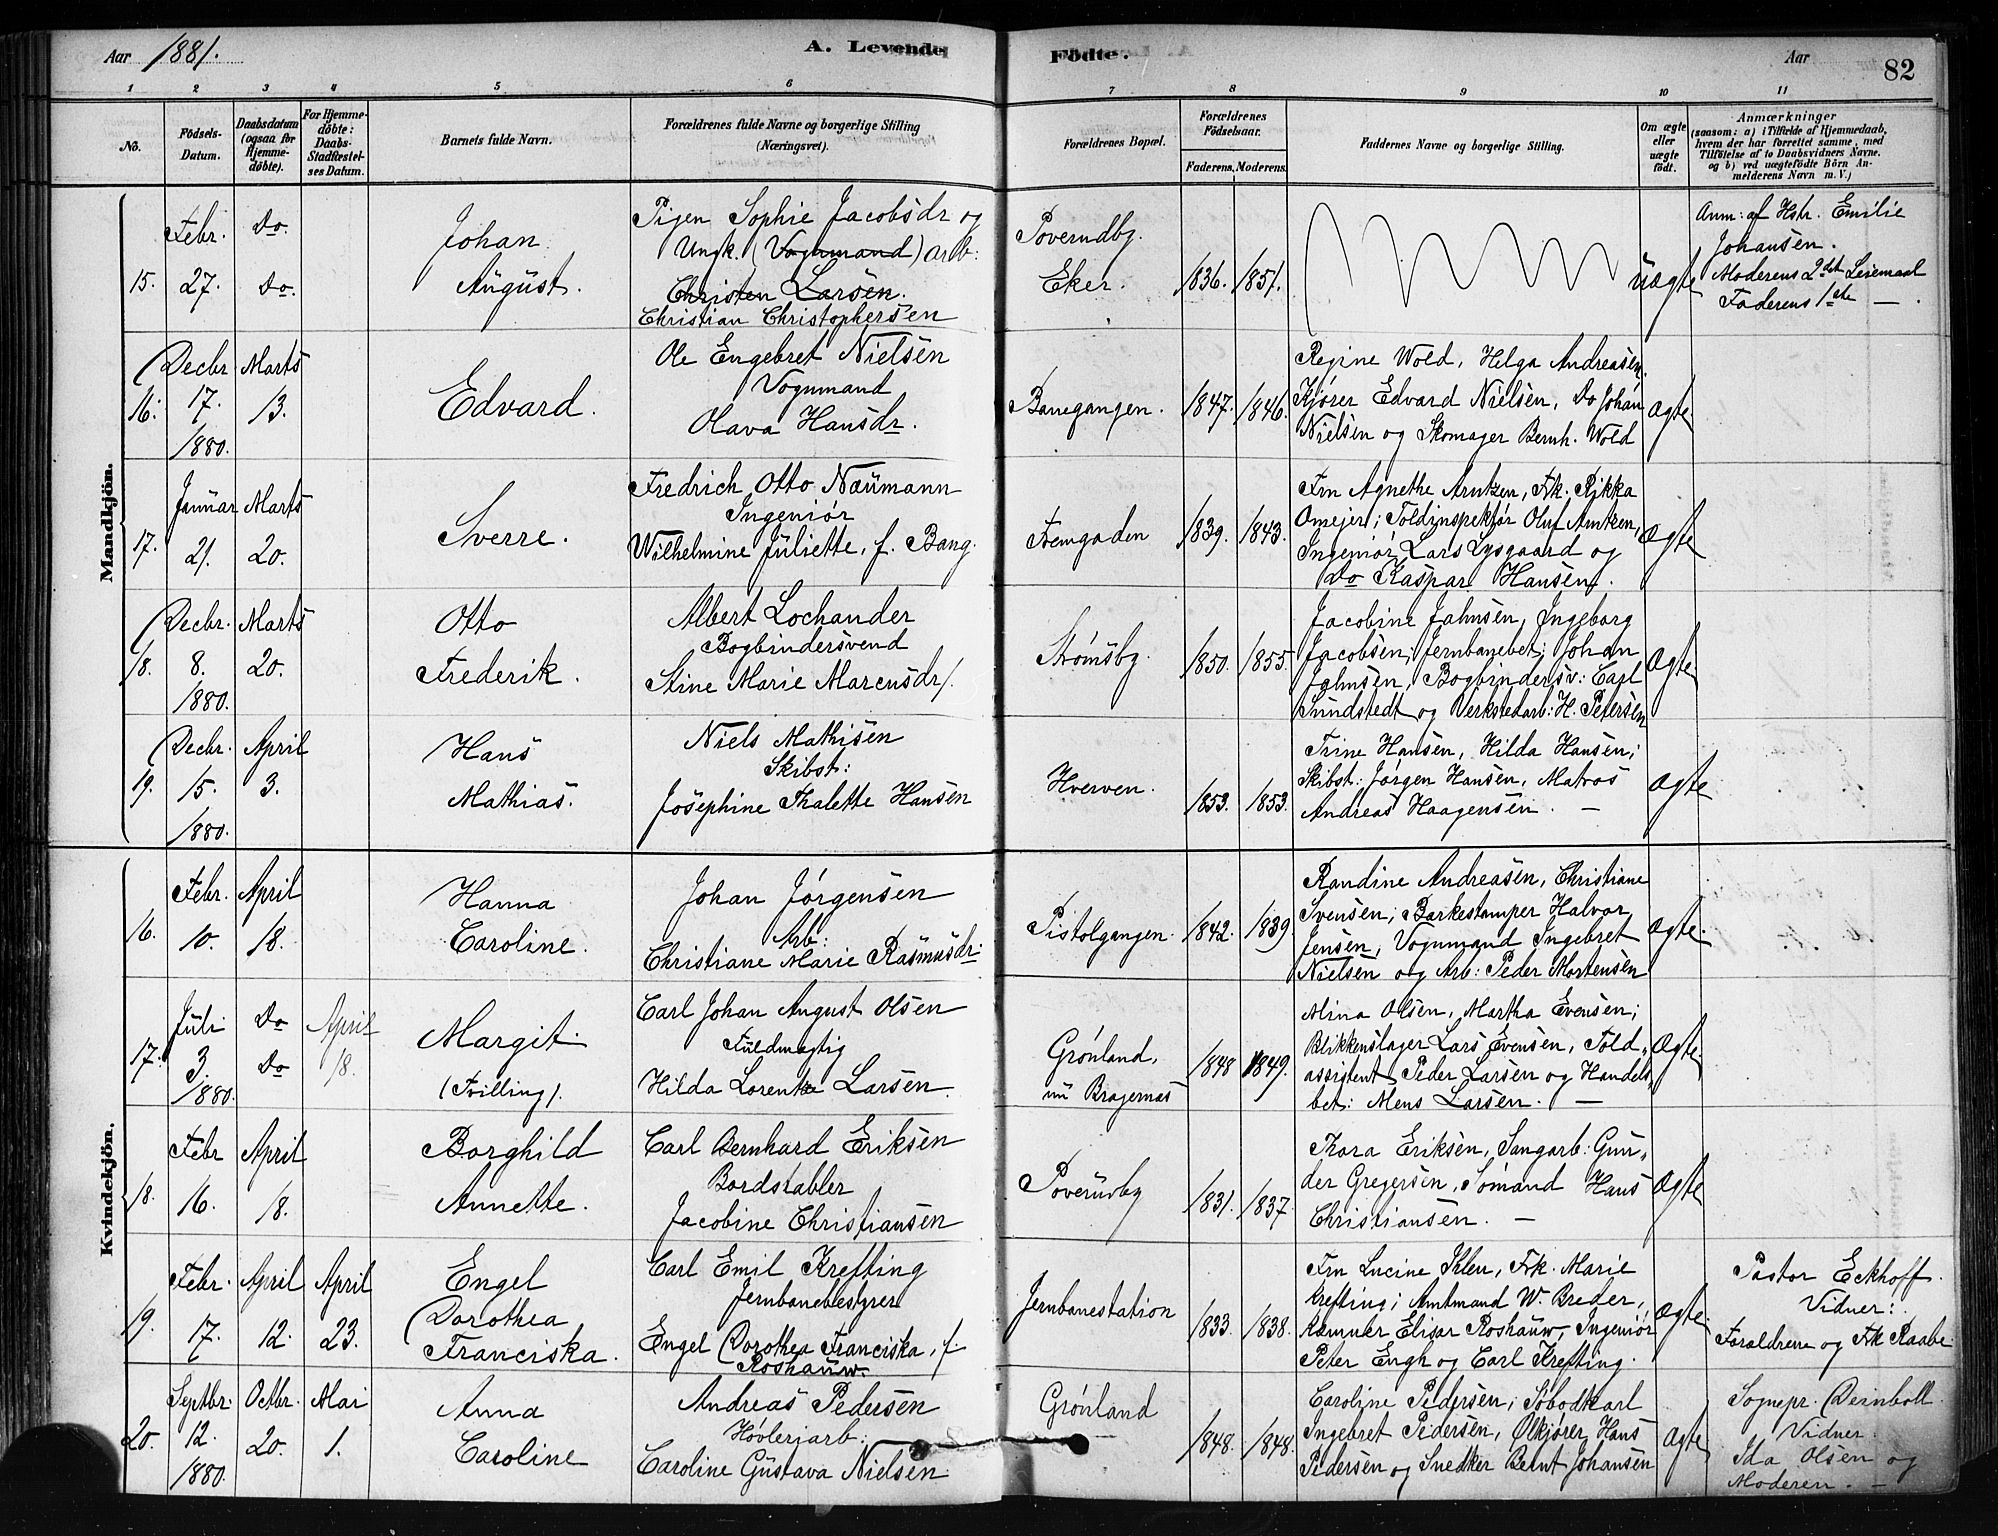 Aar 1881.
A. Levende
Födte.
Aar
82
1 2 3 4 5 6 7 8 9 10 11
No.
Födsels-Datum.
Daabsdatum (ogsaa for Hjemme-döbte).
For Hjemme-döbte: Daabs-Stadfæstel-ses Datum.
Barnets fulde Navn.
Forældrenes fulde Navne og borgerlige Stilling
(Næringsvei).
Forældrenes Bopæl.
Forældrenes Födselsaar.
Faderens.
Moderens.
Faddernes Navne og borgerlige Stilling.
Om ægte eller uægte født.
Anmærkninger
(saasom: a) i Tilfælde af Hjemmedaab,
hvem der har forrettet samme, med
Tilföielse af to Daabsvidners Navne.
og b) ved uægtefödte Börn An-
melderens Navn m. V.)
Mandkjön.
15.
Febr. 27.
Do. Do.
Johan
August.
Pigen Sophie Jacobsdr og
Ungk. (Vognmand) arb:
Christen Larsen.
Christian Christophersen
Poverudbg.
Eker.
1836.
1851.
Uægte
Anm: af Hstr. Emilie
Johansen.
Moderens 2det Leiemaal
Faderens 1ste — .
16.
Decbr 17. 1880.
Marts 13.
Edvard.
Ole Engebret Nielsen
Vognmand
Olava Hansdr.
Banegangen.
1847.
1846.
Regine Wold, Helga Andreasen.
Kjører Edvard Nielsen, Do Johan
Nielsen og Skomager Bernh. Wold
Ægte.
17.
Januar 21.
Marts 20.
Sverre.
Fredrich Otto Naumann
Ingeniør
Wilhelmine Juliette, f. Bang.
Femgaden
1839.
1843.
Fru Agnethe Arntzen, Frk. Rikka
Omejer; Toldinspektør Oluf Arntzen,
Ingeniør Lars Lysgaard og
Do Kaspar Hansen.
Ægte
18.
Decbr. 8. 1880.
Marts 20.
Otto
Frederik.
Albert Lochander
Bogbindersvend
Stine Marie Marcusdr/.
Strømsbg.
1850.
1855.
Jacobine Jahnsen, Ingeborg
Jacobsen; Jernbanebet; Johan
Jahnsen, Bogbindersv: Carl
Sundstedt og Verkstedarb: H. Petersen
Ægte
19.
Decbr. 15. 1880.
April 3.
Hans
Mathias.
Niels Mathisen
Skibst:
Josephine Thalette Hansen
Hverven.
1853.
1853.
Trine Hansen, Hilda Hansen;
Skibst: Jørgen Hansen, Matros
Andreas Haagensen. —
Ægte
Kvindekjön.
16.
Febr. 10.
April 18.
Hanna
Caroline.
Johan Jørgensen
Arb:
Christiane Marie Rasmusdr:
Pistolgangen.
1842.
1839.
Randine Andreasen, Christiane
Svensen; Barkestamper Halvor
Jensen, Vognmand Ingebret
Nielsen og Arb: Peder Mortensen
Ægte.
17.
Juli 3. 1880.
Do Do
April 18.
Margit
(Tvilling).
Carl Johan August Olsen
Fuldmægtig
Hilda Lorentze Larsen.
Grønland,
nu Bragernæs
1848
1849.
Mina Olsen, Martha Evensen;
Blikkenslager Lars Evensen, Told-
assistent Peder Larsen og Handels-
bet: Mens Larsen. —
Ægte.
18.
Febr 16.
April 18.
Borghild
Annette.
Carl Bernhard Eriksen
Bordstabler
Jacobine Christiansen
Poverudbg
1831.
1837.
Thora Eriksen, Sangarb: Gun-
der Gregersen, Sømand Hans
Christiansen. —
Ægte
19.
Febr. 17.
April 12.
April 23.
Engel
Dorothea
Franciska.
Carl Emil Krefting
Jernbanebestyrer
Engel Dorothea Franciska, f.
Roshauw.
Jernbanestation
1833.
1838.
Fru Lucine Ihlen, Frk. Marie
Krefting; Amtmand W. Breder,
Kæmner Elisar Roshauw, Ingeniør
Peter Engh og Carl Krefting.
Ægte.
Pastor Eckhoff.
Vidner:
Forældrene og Frk Raabe
20.
Septbr. 12. 1880.
Octbr. 20.
Mai 1.
Anna
Caroline
Andreas Pedersen
Høvlerjarb:
Caroline Gustava Nielsen
Grønland
1848.
1848.
Caroline Pedersen; Søbodkarl
Ingebret Pedersen, Ølkjører Hans
Pedersen og Snedker Bernt Johansen
Ægte
Sognepr. Dernboll.
Vidner.
Ida Olsen og
Moderen. —